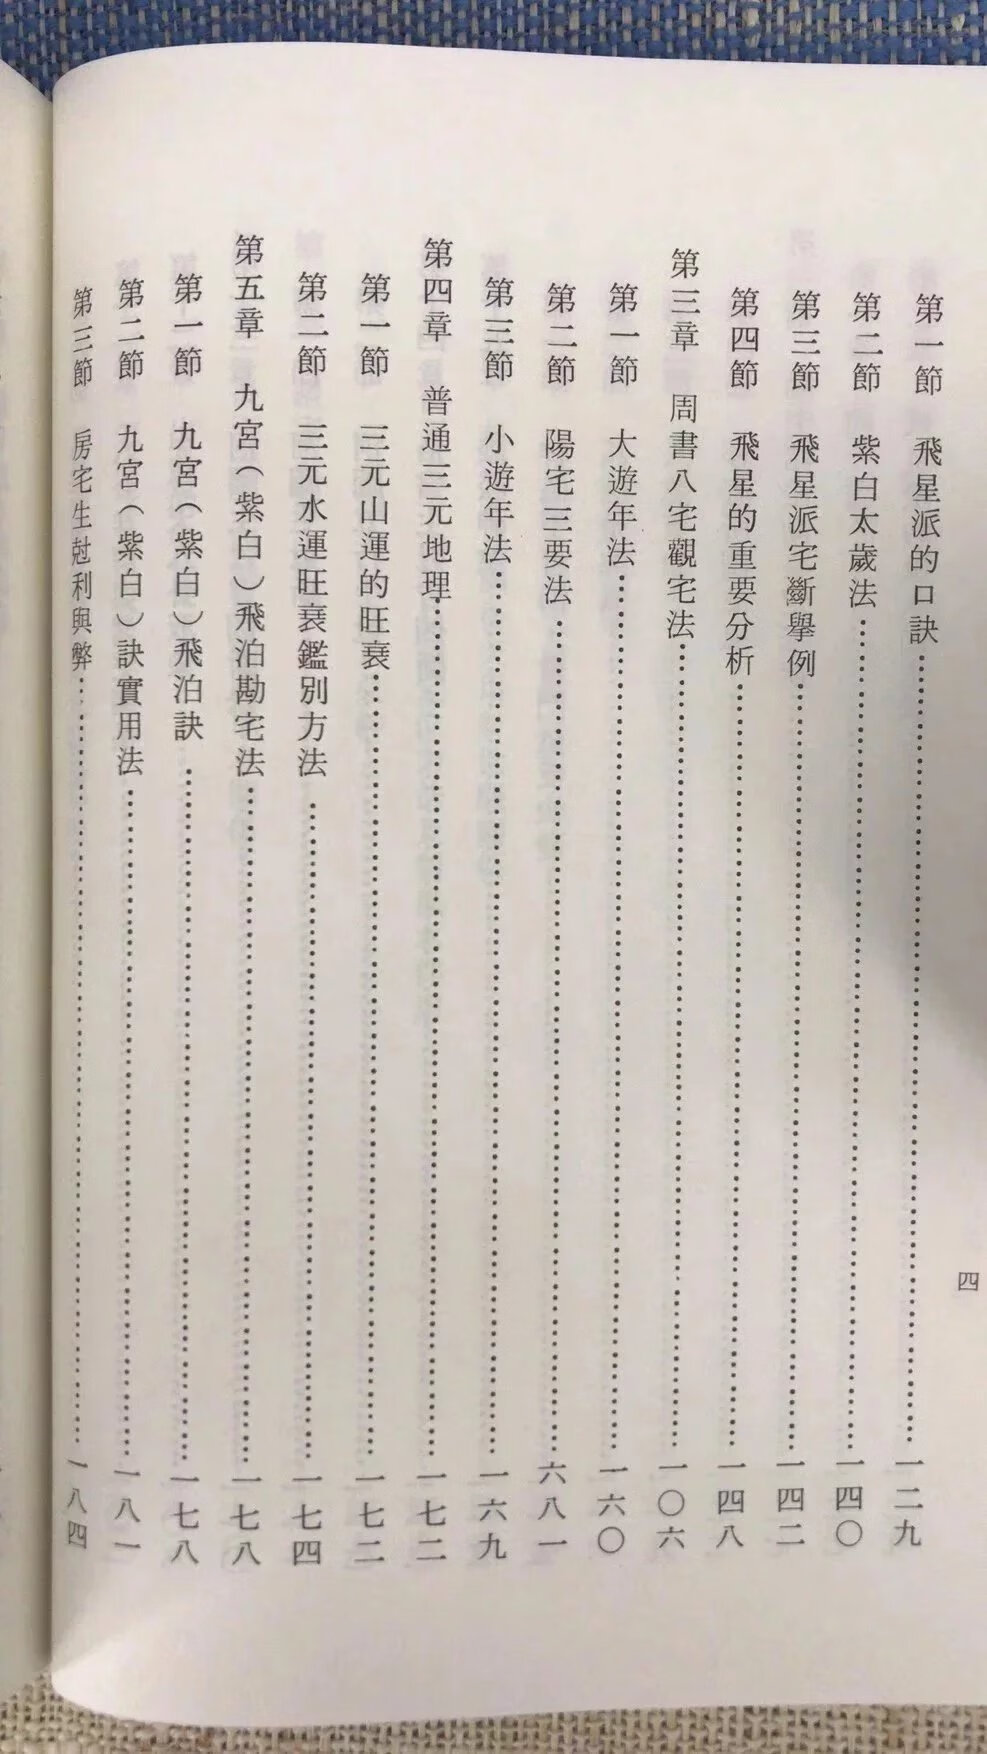 第一節　飛星派的口訣…………一二九
第二節　紫白太歲法…………一四〇
第三節　飛星派宅斷舉例…………一四二
第四節　飛星的重要分析…………一四八
第三章　周書八宅觀宅法…………一〇六
第一節　大遊年法…………一六〇
第二節　陽宅三要法…………六八一
第三節　小遊年法…………一六九
第四章　普通三元地理…………一七二
第一節　三元山運的旺衰…………一七二
第二節　三元水運旺衰鑑別方法…………一七四
第五章　九宮（紫白）飛泊勘宅法…………一七八
第一節　九宮（紫白）飛泊訣…………一七八
第二節　九宮（紫白）訣實用法…………一八一
第三節　房宅生尅利與弊…………一八四
四